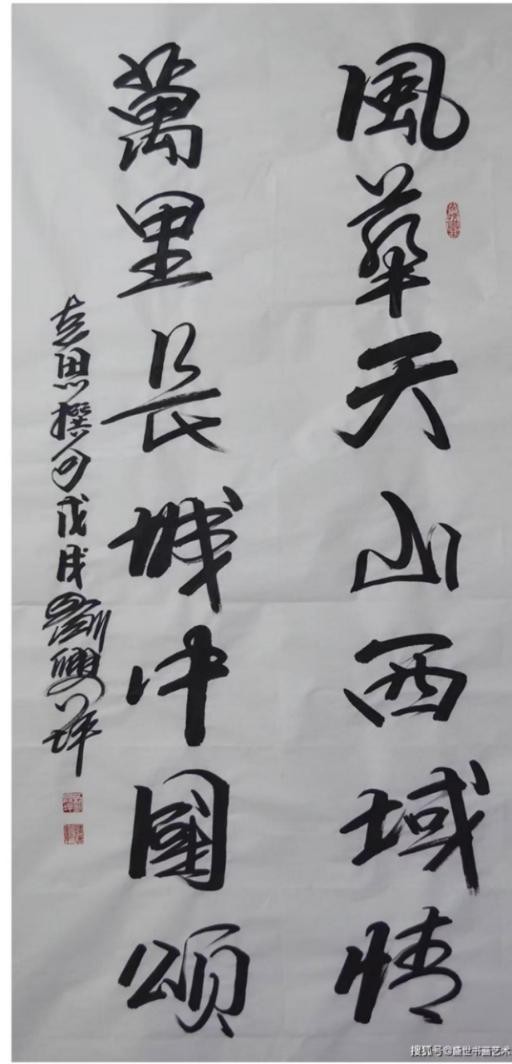 風華天山西域情
萬里長城中國颂
思撰句戊戌劉興
搜狐号@盛世书画艺术